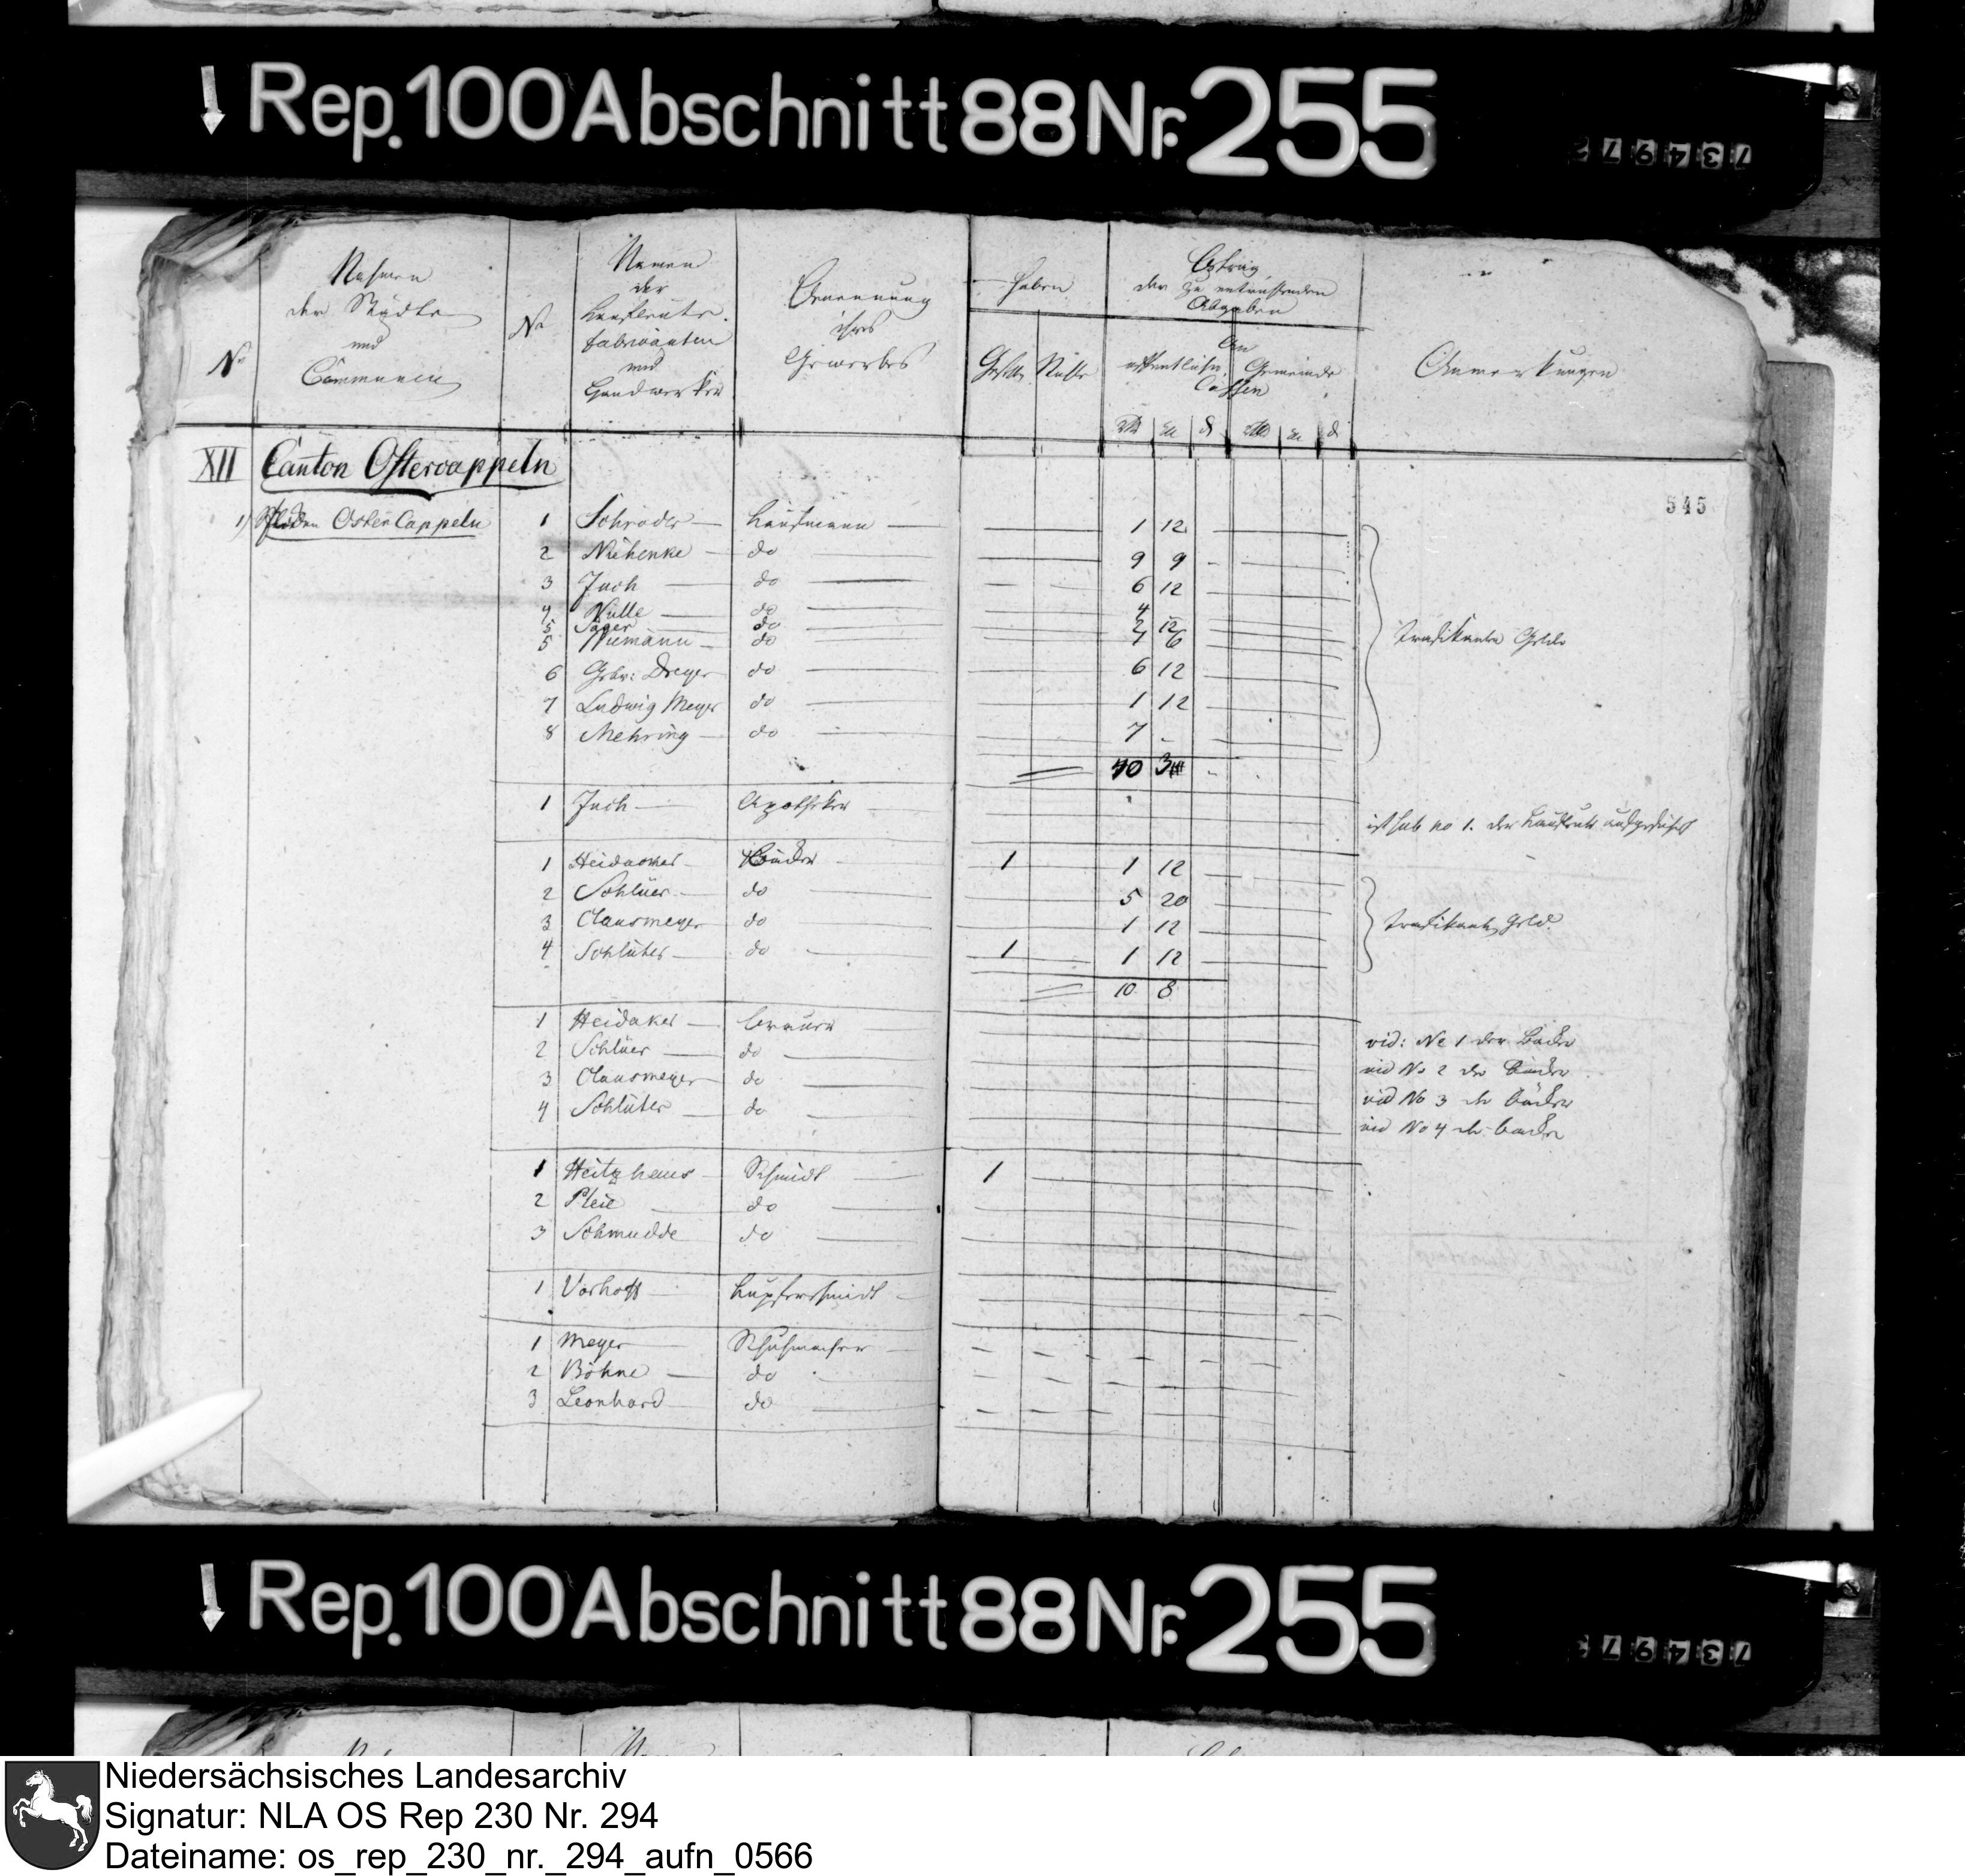 Rep. 100 Abschnitt 88 Nr. 255
734972
Nahmen der Städte und Communen
No
No
Namen der Kaufleute. Fabricanten und Handwerker
Benennung ihres Gewerbes
haben
Gesellen
Betrag der zu entrichtenden Abgaben
An
öffentliche Gemeinde
Cassen
Anmerkungen
XII Canton Ostercappeln
545
1) Flecken OsterCappeln 1 Schröder Kaufmann 1 12
2 Niehenke do 9 9
3 Juch do 6 12
4 Wülle do 4
5 Jäger do 2 12
5 Niemann do 6
Trafikanten Gelder
6 Grbr: Dreyer do 6 12
7 Ludwig Meyer do 1 12
8 Mehring do 7 -
40 3
1 Juch Apotheker
ist sub no 1. der Kaufleute aufgeführt
1 Heidacker Bäcker 1 1 12
2 Schlüer do 5 20
3 Clausmeyer do 1 12
Trafikanten Geld.
4 Schlüter do 1 1 12
10 8
1 Heidaker Brauer vid: No 1 der Bäcker
2 Schlüer do vid No 2 der Bäcker
3 Clausmeyer do vid No 3 der Bäcker
4 Schlüter do vid No 4 der Bäcker
1 Heitzhaus Schmidt 1
2 Pleie do
3 Schmudde do
1 Vorhoff Kupferschmidt
1 Meyer Schuhmacher
2 Böhne do
3 Leonhard do
Rep. 100 Abschnitt 88 Nr. 255
734973
Niedersächsisches Landesarchiv
Signatur: NLA OS Rep 230 Nr. 294
Dateiname: os_rep_230_nr._294_aufn_0566